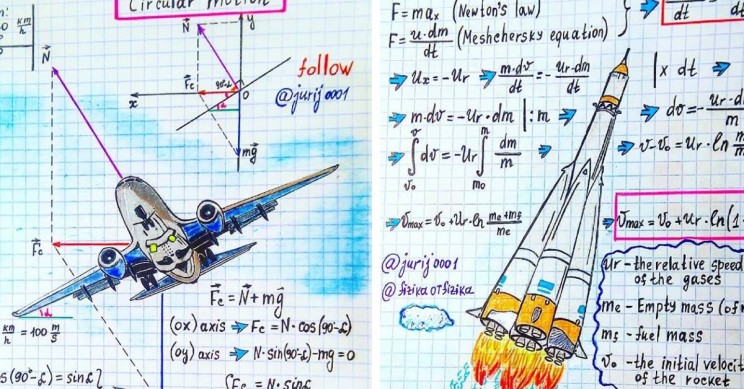 Circular motion
N
y
km
h
Fc
90°-α
x
O
α
mg
follow
@jurij0001
N
Fc
α
km/h = 100 m/s
Fc = N + mg
(ox) axis → Fc = N·cos(90°-α)
(oy) axis → N·sin(90°-α)-mg=0
(90°-α) = sinα
Fc = N·sinα
F=max (Newton's law)
F = u·dm/dt (Meshchersky equation)
dt dt
Ux = -Ur → m·dv/dt = - Ur·dm/dt | x dt
m·dv = -Ur·dm | : m
dv = - Ur·d
m
∫dv = -Ur ∫ dm/m
v v0 m m0
v-v0 = Ur·ln
Vmax = v0 + Ur·ln me+mf/me
Vmax = v0 + Ur·ln(1
@jurij0001
@fizikaotfizika
Ur - the relative speed
of the gases
me - Empty mass (of
mf - fuel mass
v0 - the initial velocit
of the rocket